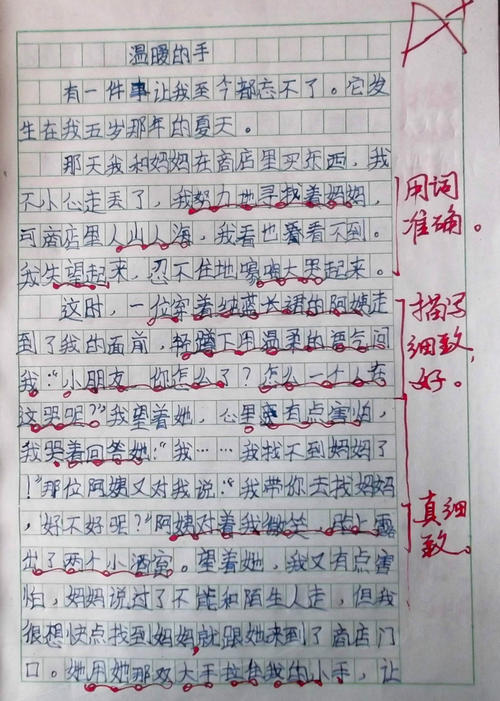 温暖的手
有一件事让我至今都忘不了。它发
生在我五岁那年的夏天。
那天我和妈妈在商店里买东西，我
不小心走丢了，我努力地寻找着妈妈，
可商店里人山人海，我看也看不到。
我失望起来，忍不住地嚎啕大哭起来。
用词
准确。
这时，一位穿着纯蓝长裙的阿姨走
到了我的面前，轻蹲下用温柔的语气问
我：“小朋友，你怎么了？怎么一个人在
这哭呢？”我望着她，心里有点害怕，
我哭着回答她：“我……我找不到妈妈了
！”那位阿姨又对我说：“我带你去找妈妈
，好不好呢？”阿姨对着我微笑，脸上露
出了两个小酒窝。望着她，我又有点害
怕，妈妈说过了不能和陌生人走，但我
很想快点找到妈妈，就跟她来到了商店门
口。她用她那双大手拉住我的小手，让
描写
细致，
好。
真细
致。